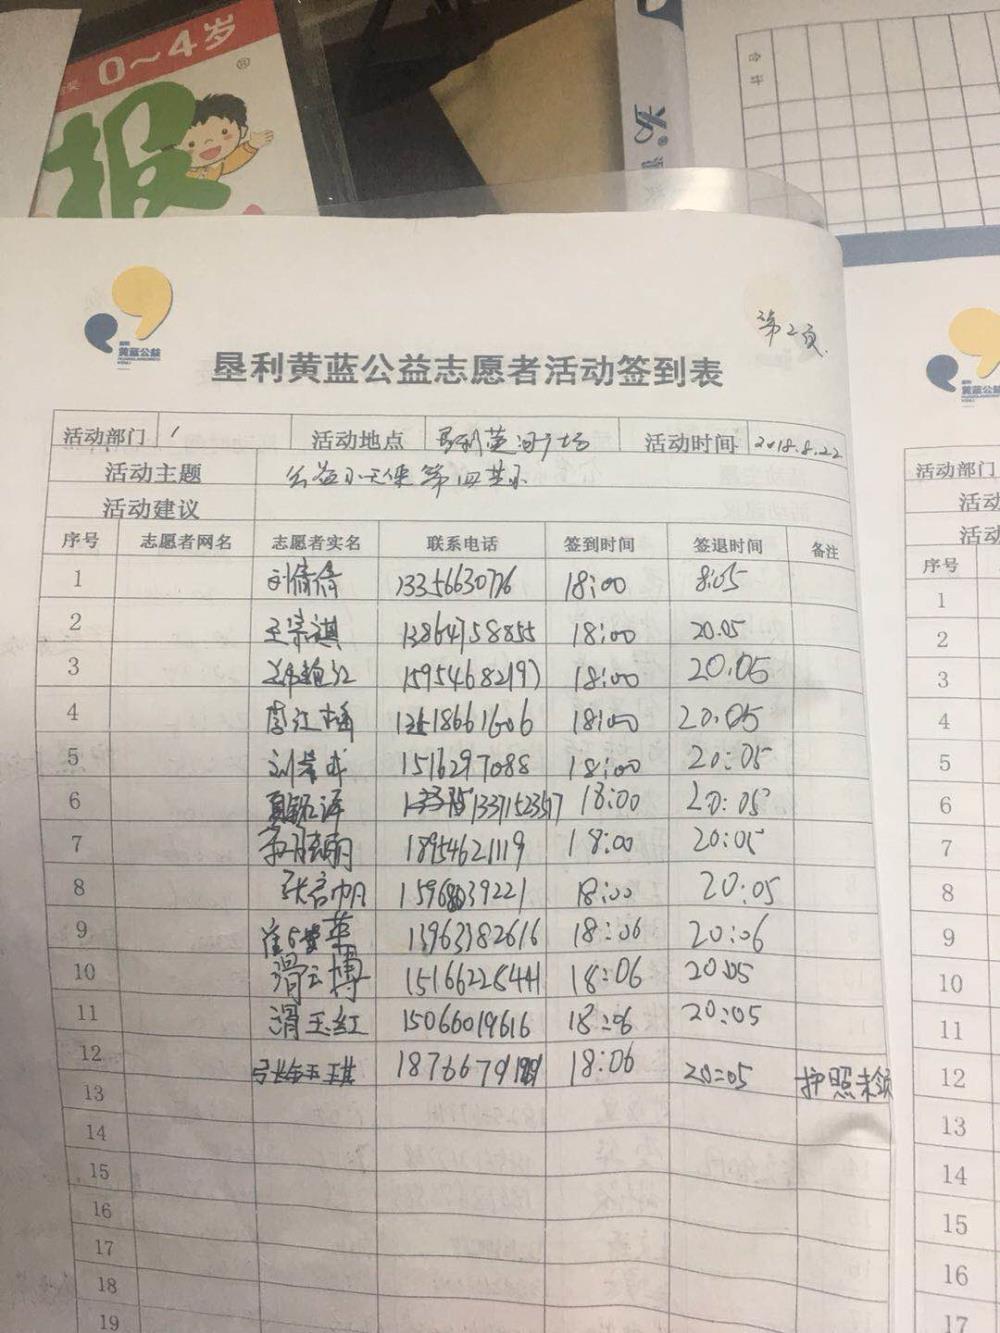 0～4岁
报
®
合计
第2页
黄蓝公益
垦利黄蓝公益志愿者活动签到表
活动部门 1 活动地点 垦利 广场 活动时间 2018.8.22
活动主题 公益小天使第四
活动建议
序号 志愿者网名 志愿者实名 联系电话 签到时间 签退时间 备注
1 刘倩倩 13356630776 18:00 8:05
2 王宗祺 13864758855 18:00 20.05
3 15954682197 18:00 20:05
4 李江梅 18661606 18:00 20:05
5 1516297088 18:00 20:05
6 13371523517 18:00 20:05
7 18954621119 18:00 20:05
8 张启帆 18:00 20:05
9 13963382616 18:06 20:06
10 滑云博 15166228441 18:06 20:05
11 滑玉红 15066019616 18:06 20:05
12 18766791 18:06 20:05 护照未领
13
14
15
16
17
18
19
黄蓝公益
活动部门
活动
活动
序号
1
2
3
4
5
6
7
8
9
10
11
12
13
14
15
16
17